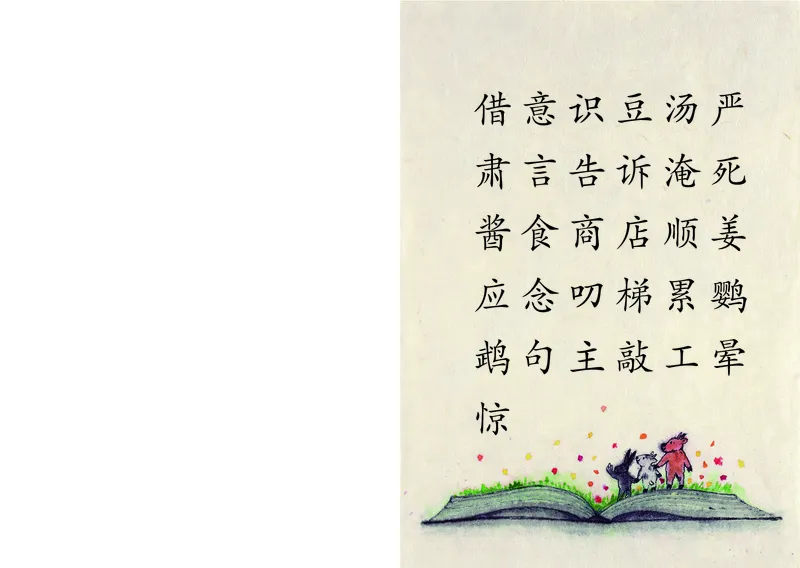 借意识豆汤严
肃言告诉淹死
酱食商店顺姜
应念叨梯累鹦
鹉句主敲工晕
惊